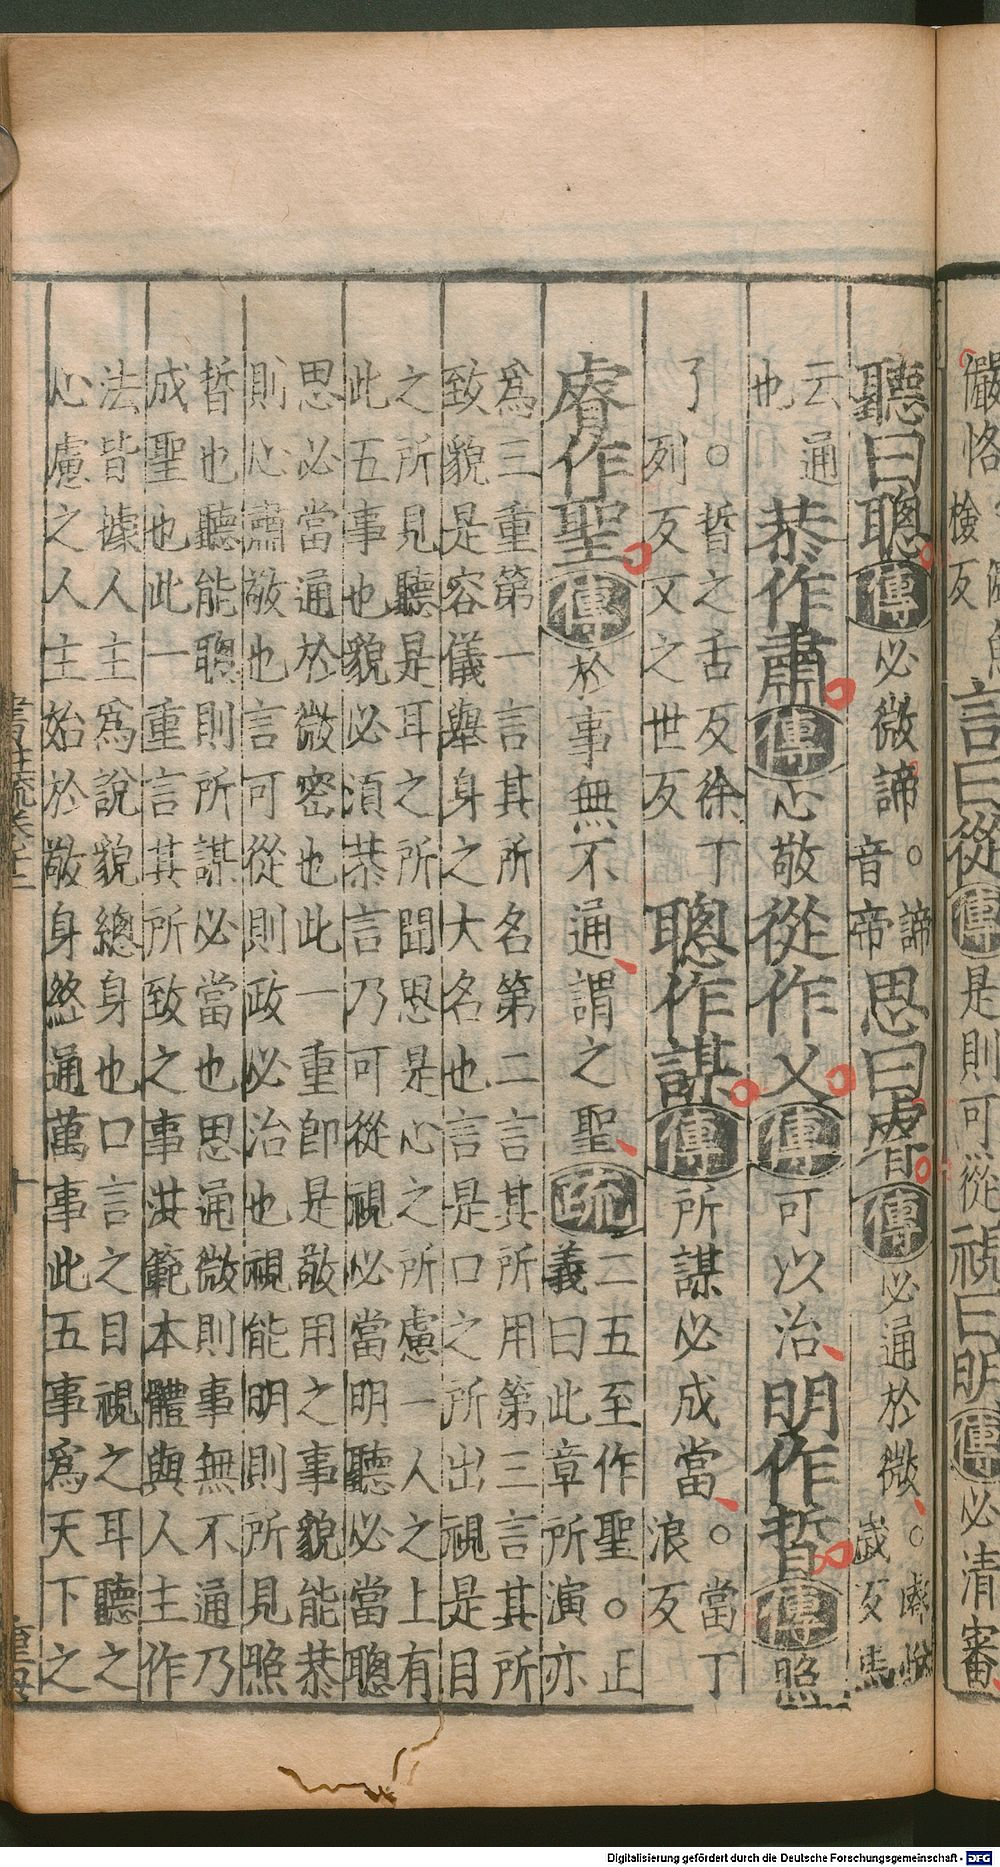 儼恪
檢反
言曰從傳是則可從視曰明傳必清審
聽曰聰傳必微諦。諦
音帝
思曰睿傳必通於微。睿悅
歲反馬
云通
也
恭作肅傳心敬從作乂傳可以治明作晢傳照
了。晢之舌反徐丁
列反又之世反
聰作謀傳所謀必成當。當丁
浪反
睿作聖傳於事無不通謂之聖疏二五至作聖。正
義曰此章所演亦
爲三重第一言其所名第二言其所用第三言其所
致貌是容儀舉身之大名也言是口之所出視是目
之所見聽是耳之所聞思是心之所慮一人之上有
此五事也貌必須恭言乃可從視必當明聽必當聰
思必當通於微密也此一重即是敬用之事貌能恭
則心肅敬也言可從則政必治也視能明則所見照
晢也聽能聰則所謀必當也思通微則事無不通乃
成聖也此一重言其所致之事洪範本體與人主作
法皆據人主爲說貌總身也口言之目視之耳聽之
心慮之人主始於敬身終通萬事此五事爲天下之
書註疏卷十二
十
Digitalisierung gefördert durch die Deutsche Forschungsgemeinschaft - DFG